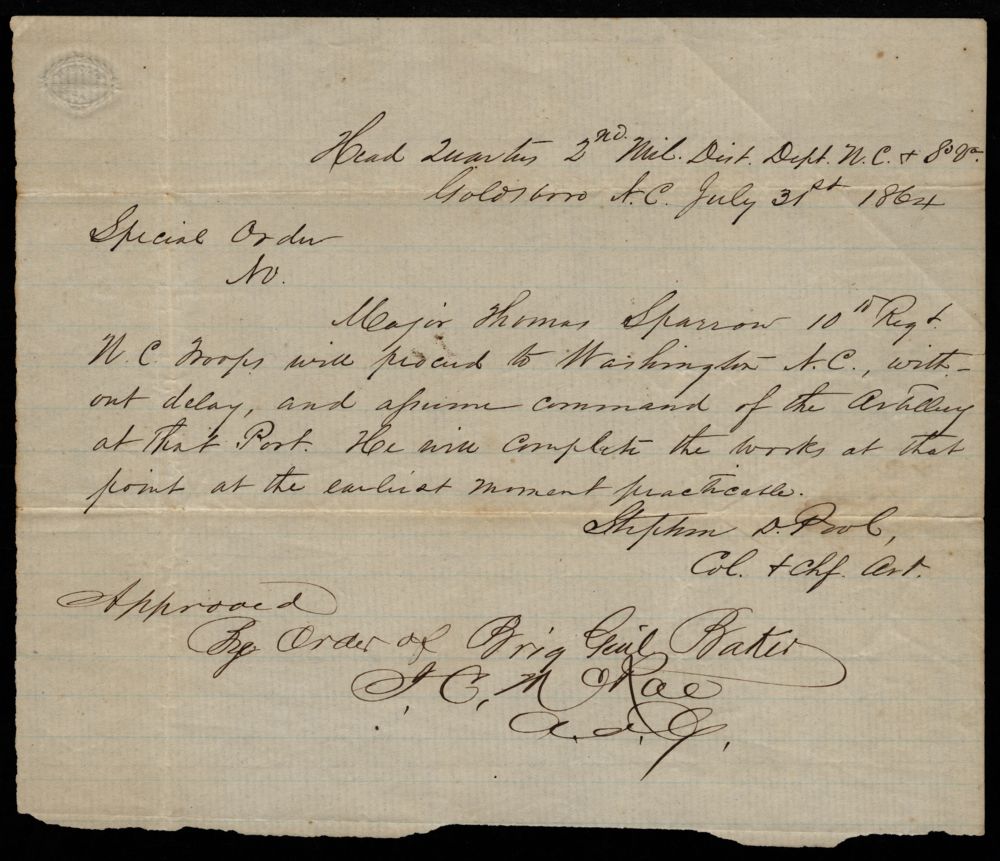 Head Quarters 2nd. Mil. Dist. Dept. N.C. & So Va.
Goldsboro N.C. July 31st 1864
Special Order
No.
Major Thomas Sparrow 10th Regt.
N.C. Troops will proceed to Washington N.C., with-
out delay, and assume command of the Artillery
at that Port. He will complete the works at that
point at the earliest moment practicable.
Stephen D. Pool,
Col. & Chf. Art.
Approved
By Order of Brig Genl Baker
J. C. McRae
A. A. G.